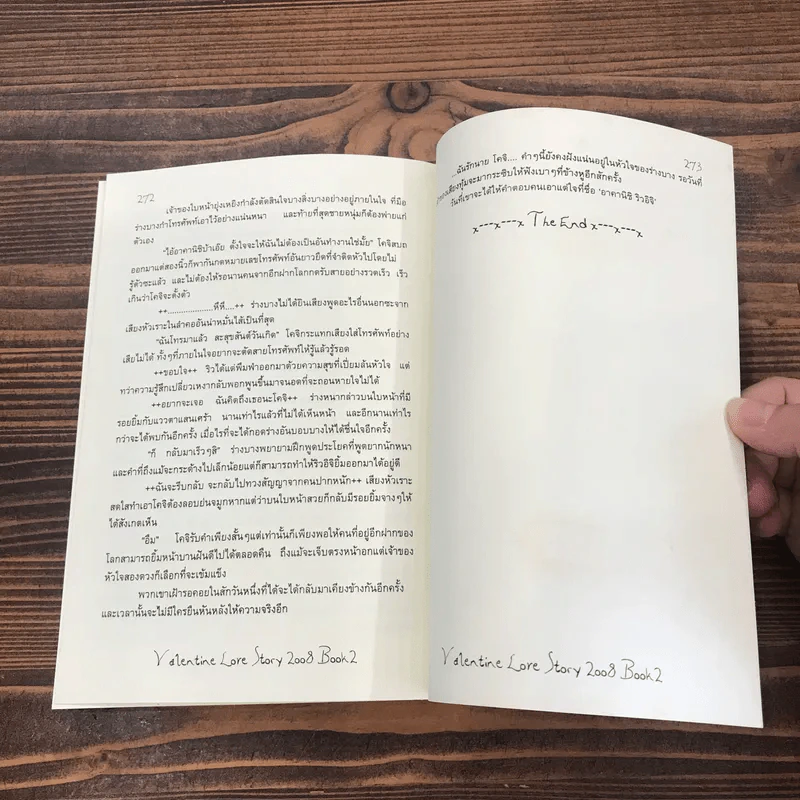 272
เจ้าของใบหน้ายุ่งเหยิงกำลังตัดสินใจบางสิ่งบางอย่างอยู่ภายในใจ ที่มือ
ร่างบางกำโทรศัพท์เอาไว้อย่างแน่นหนา และท้ายที่สุดชายหนุ่มก็ต้องพ่ายแก่
ตัวเอง
"ไอ้อาคานิชิบ้าเอ๊ย ตั้งใจจะให้ฉันไม่ต้องเป็นอันทำงานใช่มั้ย" โคจิสบถ
ออกมาแต่สองนิ้วก็พากันกดหมายเลขโทรศัพท์อันยาวยืดที่จำติดหัวไปโดยไม่
รู้ตัวซะแล้ว และไม่ต้องให้รอนานคนจากอีกฝากโลกกครับสายอย่างรวดเร็ว เร็ว
เกินว่าโคจิจะตั้งตัว
++...................พี่พี....++ ร่างบางไม่ได้ยินเสียงพูดอะไรอื่นนอกซะจาก
เสียงหัวเราะในลำคออันน่าหมั่นไส้เป็นที่สุด
"ฉันโทรมาแล้ว สะสุขสันต์วันเกิด" โคจิกระแทกเสียงใส่โทรศัพท์อย่าง
เสียไม่ได้ ทั้งๆที่ภายในใจอยากจะตัดสายโทรศัพท์ให้รู้แล้วรู้รอด
++ขอบใจ++ ริวได้แต่พึมพำออกมาด้วยความสุขที่เปี่ยมล้นหัวใจ แต่
ทว่าความรู้สึกเปลี่ยวเหงากลับพอกพูนขึ้นมาจนอดที่จะถอนหายใจไม่ได้
++อยากจะเจอ ฉันคิดถึงเธอนะโคจิ++ ร่างหนากล่าวบนใบหน้าที่มี
รอยยิ้มกับแววตาแสนเศร้า นานเท่าไรแล้วที่ไม่ได้เห็นหน้า และอีกนานเท่าไร
กว่าจะได้พบกันอีกครั้ง เมื่อไรที่จะได้กอดร่างอันบอบบางให้ได้ชื่นใจอีกครั้ง
"ก็ กลับมาเร็วๆสิ" ร่างบางพยายามฝึกพูดประโยคที่พูดยากนักหนา
และคำที่ถึงแม้จะกระด้างไปเล็กน้อยแต่ก็สามารถทำให้ริวอิจิยิ้มออกมาได้อยู่ดี
++ฉันจะรีบกลับ จะกลับไปทวงสัญญาจากคนปากหนัก++ เสียงหัวเราะ
สดใสทำเอาโคจิต้องลอบย่นจมูกหากแต่ว่าบนใบหน้าสวยก็กลับมีรอยยิ้มจางๆให้
ได้สังเกตเห็น
"อืม" โคจิรับคำเพียงสั้นๆแต่เท่านั้นก็เพียงพอให้คนที่อยู่อีกฝากของ
โลกสามารถยิ้มหน้าบานฝันดีไปได้ตลอดคืน ถึงแม้จะเจ็บตรงหน้าอกแต่เจ้าของ
หัวใจสองดวงก็เลือกที่จะเข้มแข็ง
พวกเขาเฝ้ารอคอยในสักวันหนึ่งที่ได้จะได้กลับมาเคียงข้างกันอีกครั้ง
และเวลานั้นจะไม่มีใครยืนหันหลังให้ความจริงอีก
Valentine Love Story 2008 Book2
273
...ฉันรักนาย โคจิ.... คำๆนี้ยังคงฝังแน่นอยู่ในหัวใจของร่างบาง รอวันที่
เสียงทุ้มจะมากระซิบให้ฟังเบาๆที่ข้างหูอีกสักครั้ง
วันที่เขาจะได้ให้คำตอบคนเอาแต่ใจที่ชื่อ 'อาคานิชิ ริวอิจิ'
x---x---x The End x---x---x
Valentine Love Story 2008 Book2